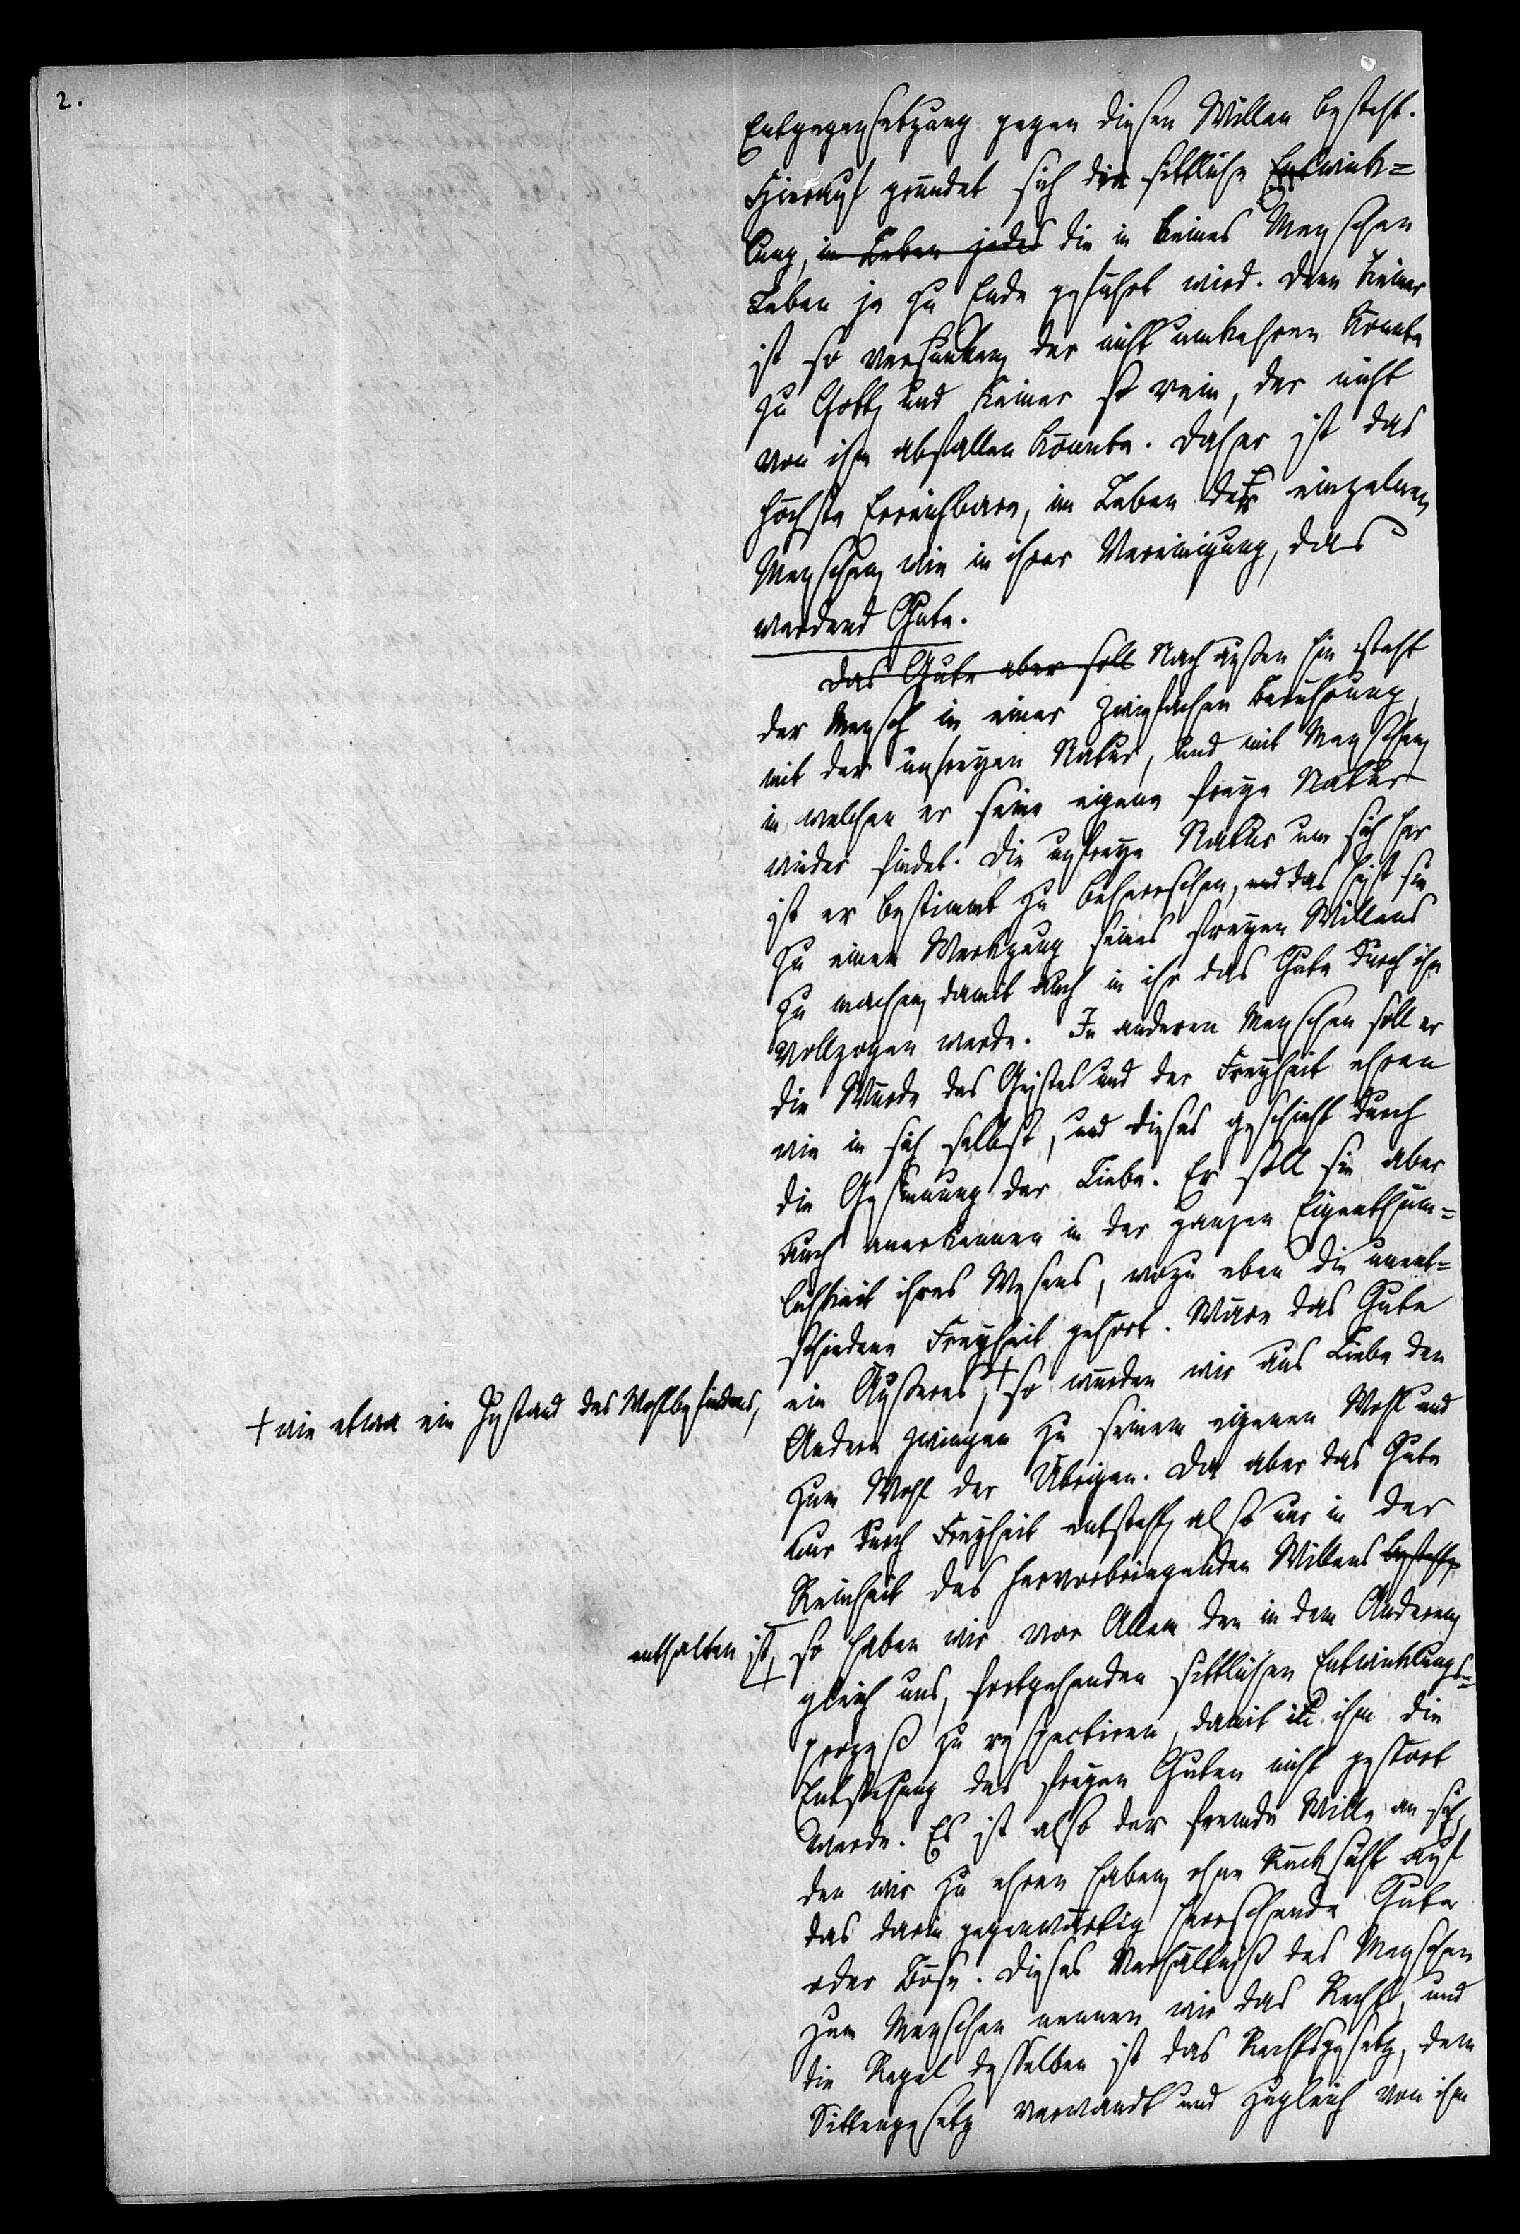 2.
Entgegensetzung gegen diesen Willen besteht.
Hierauf gründet sich die sittliche Entwick=
lung, im Leben jedes die in keines Menschen
Leben je zu Ende geführt wird. Denn Keiner
ist so versunken, der nicht umkehren könnte
zu Gott, und Keiner so rein, der nicht
von ihm abfallen könnte. Daher ist das
höchste Erreichbare, im Leben des einzelnen
Menschen, wie in ihrer Vereinigung, das
werdend Gute.
Das Gute aber soll Nach außen hin steht
der Mensch in einer zwiefachen Berührung,
mit der unfreyen Natur, und mit Menschen,
in welchen er seine eigene freye Natur
wieder findet. Die unfreye Natur um sich her
ist er bestimmt zu beherrschen, und das heißt sie
zu einem Werkzeug seines freyen Willens
zu machen, damit auch in ihr das Gute durch ihn
vollzogen werde. In anderen Menschen soll er
die Würde des Geistes und der Freyheit ehren
wie in sich selbst, und dieses geschieht durch
die Gesinnung der Liebe. Er soll sie aber
auch anerkennen in der ganzen Eigenthüm=
lichkeit ihres Wesens, wozu eben die unent=
schiedene Freyheit gehört. Wäre das Gute
ein Äußeres, + so würden wir aus Liebe den
+ wie etwa ein Zustand des Wohlbefindens,
Andern zwingen zu seinem eigenen Wohl und
zum Wohl der Übrigen. Da aber das Gute
nur durch Freyheit entsteht, also nur in der
Reinheit des hervorbringenden Willens besteht,
enthalten ist,
so haben wir vor Allem den in dem Anderen,
gleich uns, fortgehenden sittlichen Entwicklungs=
prozeß zu respectiren, damit in ihm die
Entstehung des freyen Guten nicht gestört
werde. Es ist also der fremde Wille an sich,
den wir zu ehren haben, ohne Rücksicht auf
das darin gegenwärtig herrschende Gute
oder Böse. Dieses Verhältniß des Menschen
zum Menschen nennen wir das Recht, und
die Regel desselben ist das Rechtsgesetz, dem
Sittengesetz verwandt und zugleich von ihm